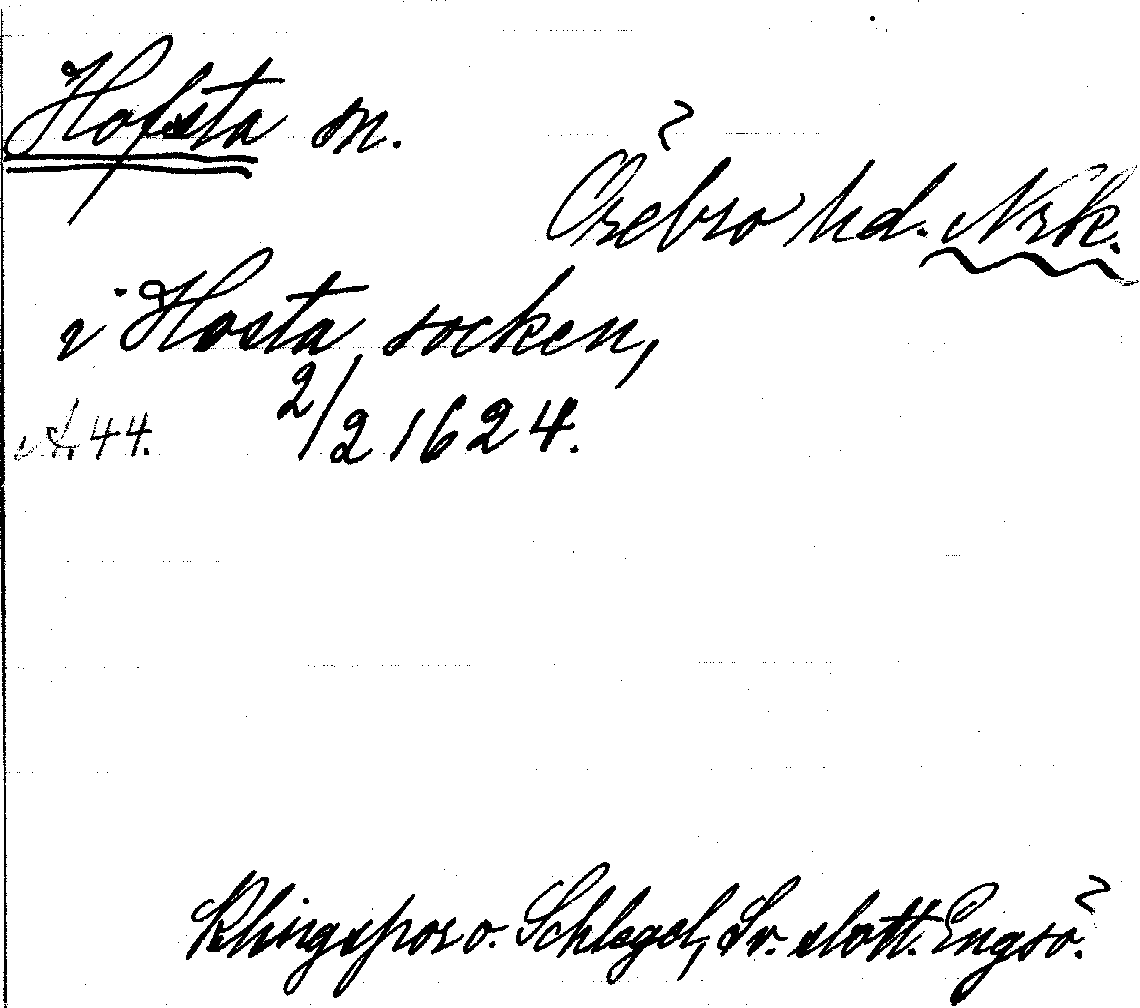 Hofsta sn.
Örebro hd. Nrk.
i Hosta socken,
A. 44. 2/2 1624.
Klingspor o. Schlegel, Sv. slott. Engsö.